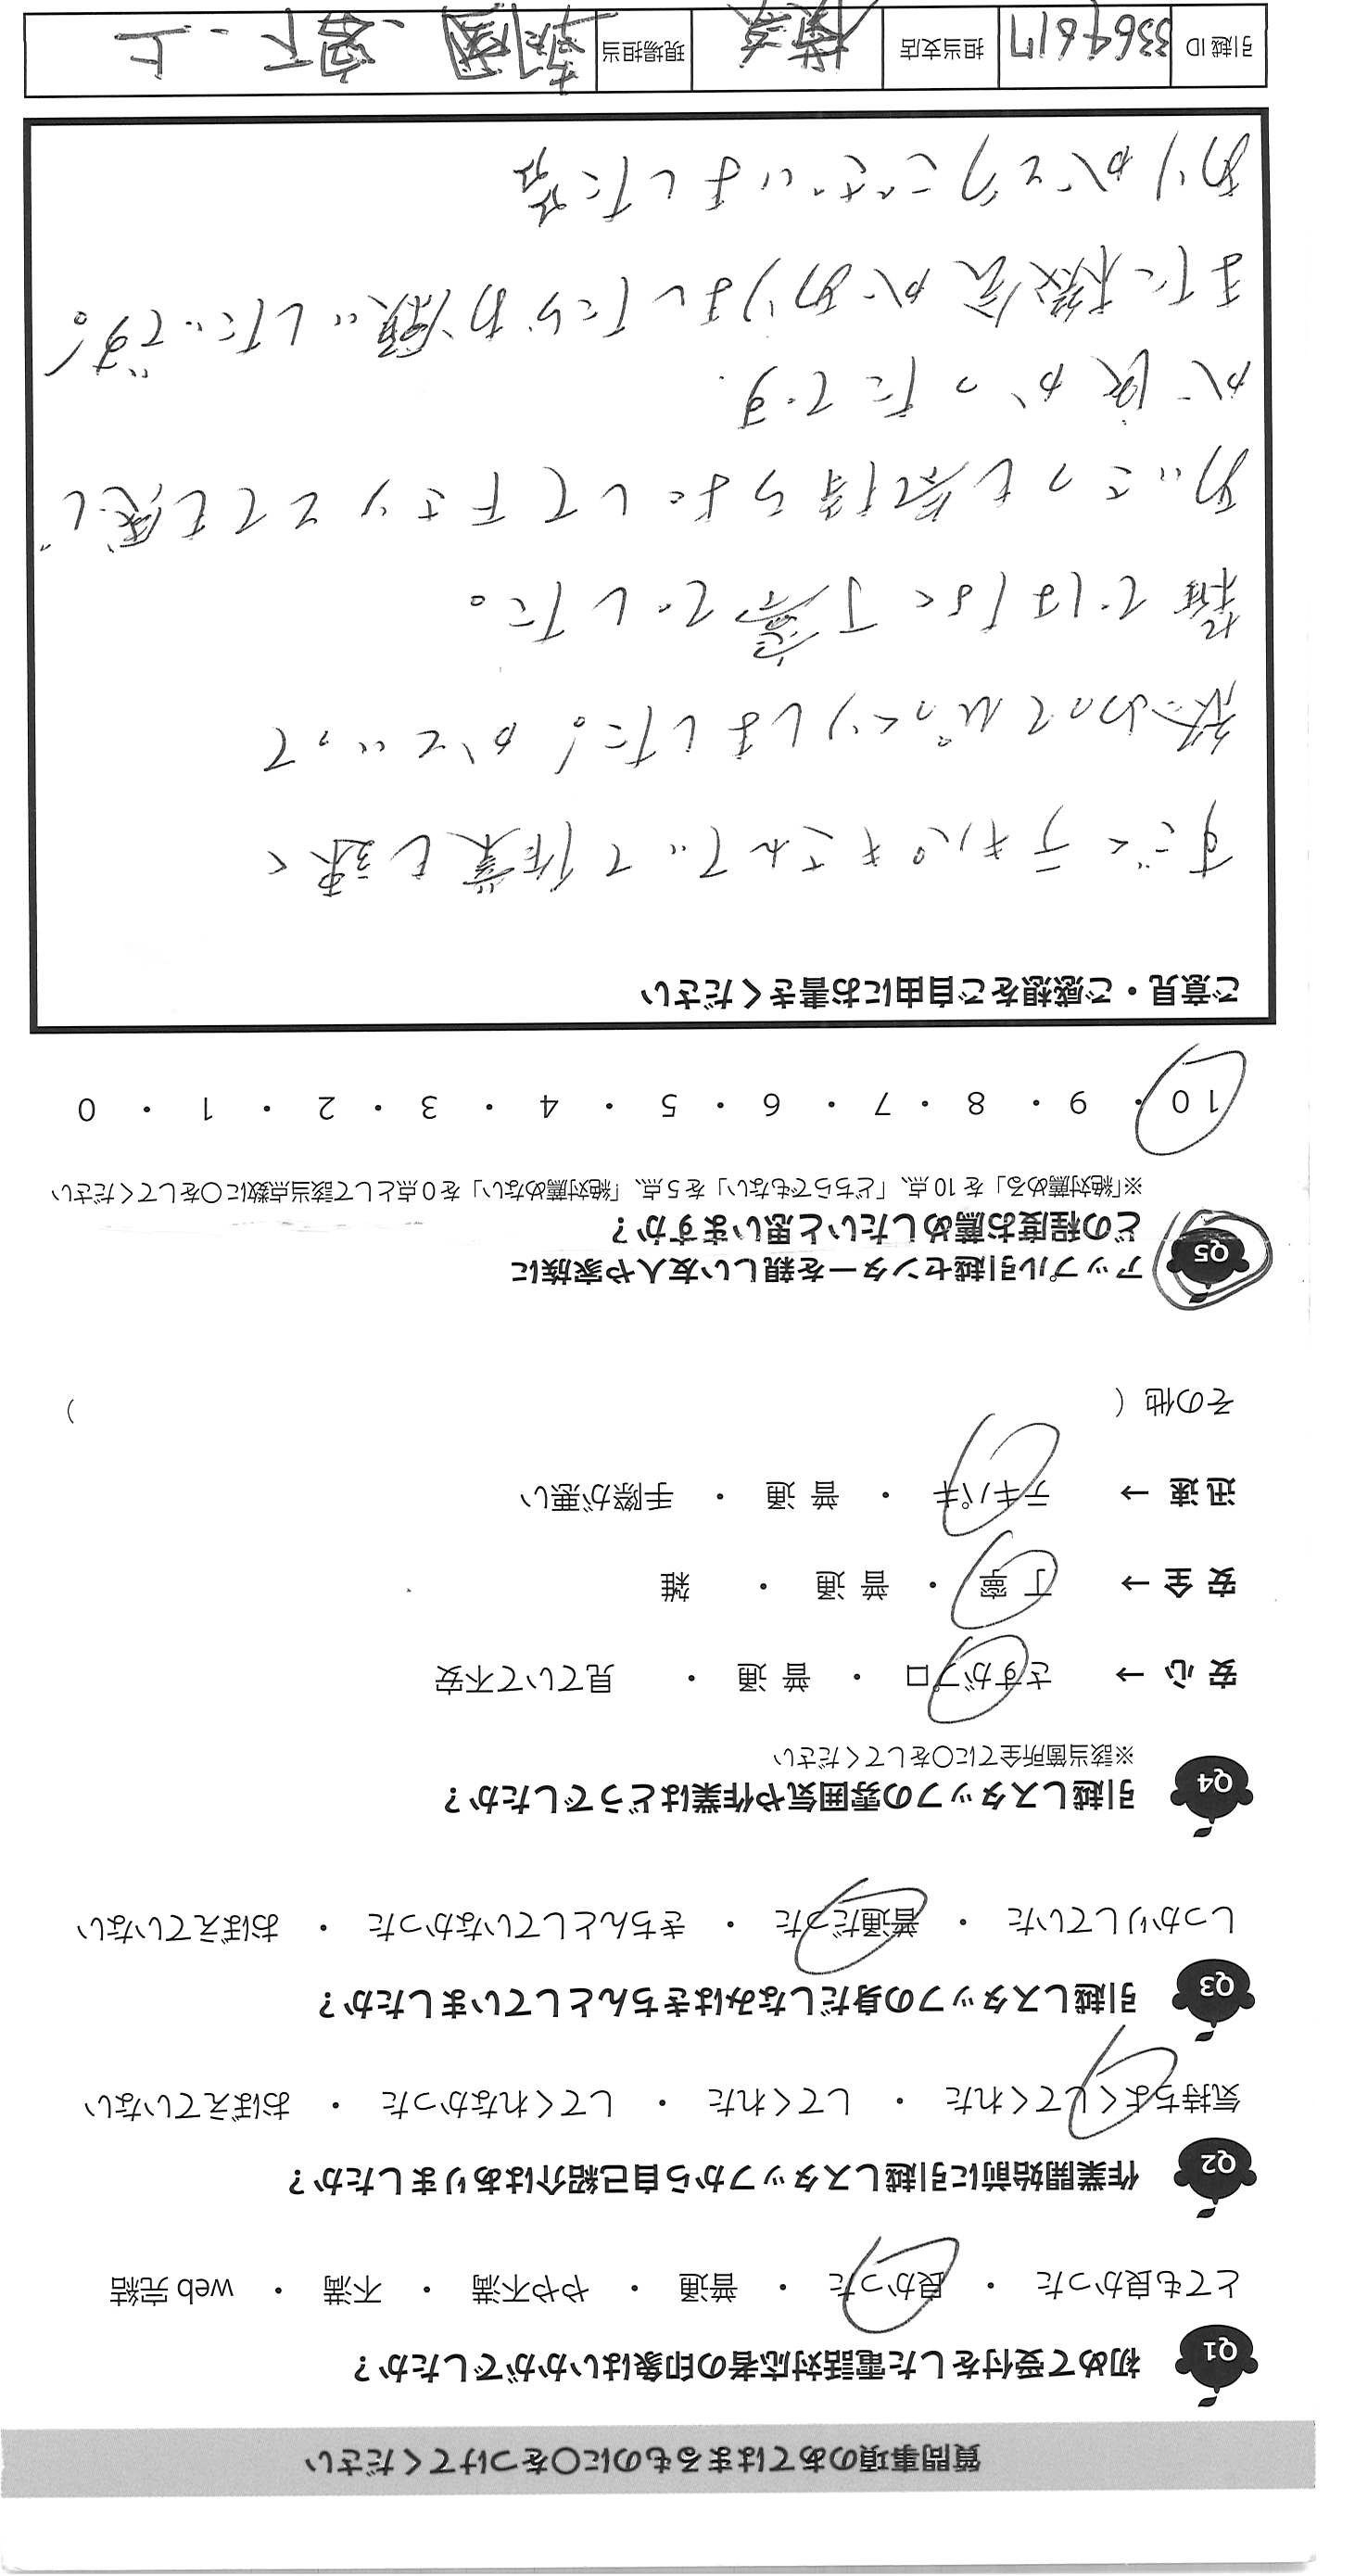 質問事項のあてはまるものに〇をつけてください
Q1 初めて受付をした電話対応者の印象はいかがでしたか？
とても良かった ・ 良かった ・ 普通 ・ やや不満 ・ 不満 ・ web 完結
Q2 作業開始前に引越しスタッフから自己紹介はありましたか？
気持ちよくしてくれた ・ してくれた ・ してくれなかった ・ おぼえていない
Q3 引越しスタッフの身だしなみはきちんとしていましたか？
しっかりしていた ・ 普通だった ・ きちんとしていなかった ・ おぼえていない
Q4 引越しスタッフの雰囲気や作業はどうでしたか？
※該当箇所全てに〇をしてください
安 心 → さすがプロ ・ 普 通 ・ 見ていて不安
安 全 → 丁 寧 ・ 普 通 ・ 雑
迅 速 → テキパキ ・ 普 通 ・ 手際が悪い
その他（ ）
Q5 アップル引越センターを親しい友人や家族に
どの程度お薦めしたいと思いますか？
※「絶対薦める」を 10 点、「どちらでもない」を 5 点、「絶対薦めない」を 0 点として該当点数に〇をしてください
10 ・ 9 ・ 8 ・ 7 ・ 6 ・ 5 ・ 4 ・ 3 ・ 2 ・ 1 ・ 0
ご意見・ご感想をご自由にお書きください
すごくテキパキされていて作業も速く
終わってびっくりしました！かといって
雑ではなく丁寧でした。
あいさつも気持ちよくして下さりとても感じ
が良かったです.
また機会がありましたらお願いしたいです！
ありがとうございました
引越 ID 3364617 担当支店 現場担当 宮下・上